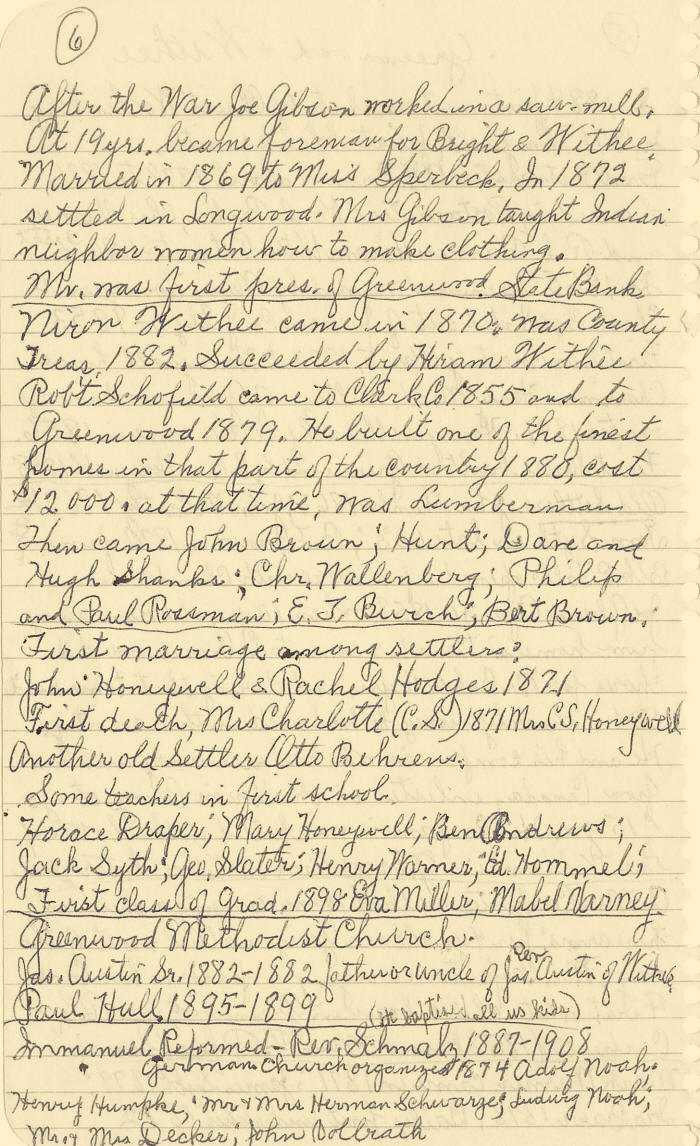 6
After the War Joe Gibson worked in a saw-mill.
At 19 yrs. became foreman for Bright & Withee.
Married in 1869 to Miss Sperbeck. In 1872
settled in Longwood. Mrs Gibson taught Indian
neighbor women how to make clothing.
Mr. was first pres. of Greenwood State Bank
Niron Withee came in 1870. was County
Treas. 1882. Succeeded by Hiram Withee
Robt. Schofield came to Clark Co 1855 and to
Greenwood 1879. He built one of the finest
homes in that part of the country 1880, cost
$12000. at that time, was Lumberman
Then came John Brown; Hunt; Dave and
Hugh Shanks; Chr. Wallenberg; Philip
and Paul Rossman; E. T. Burch; Bert Brown.
First marriage among settlers:
John Honeywell & Rachel Hodges 1871
First death, Mrs Charlotte (C.S.) 1871 Mrs C.S. Honeywell
Another old Settler Otto Behrens.
Some teachers in first school.
Horace Draper; Mary Honeywell; Ben Andrews;
Jack Syth; Geo. Slater; Henry Warner; Ed. Hommel;
First class of Grad. 1898 Eva Miller; Mabel Varney.
Greenwood Methodist Church.
Jas. Austin Sr. 1882-1882 father or uncle of Rev Jas Austin of Withee
Paul Hull 1895-1899 (He baptised all us kids)
Immanuel Reformed - Rev. Schmalz 1887-1908
German Church organized 1874 Adolf Noah.
Henry Humpke; Mr & Mrs Herman Schwarze; Ludwig Noah;
Mr & Mrs Decker; John Vollrath